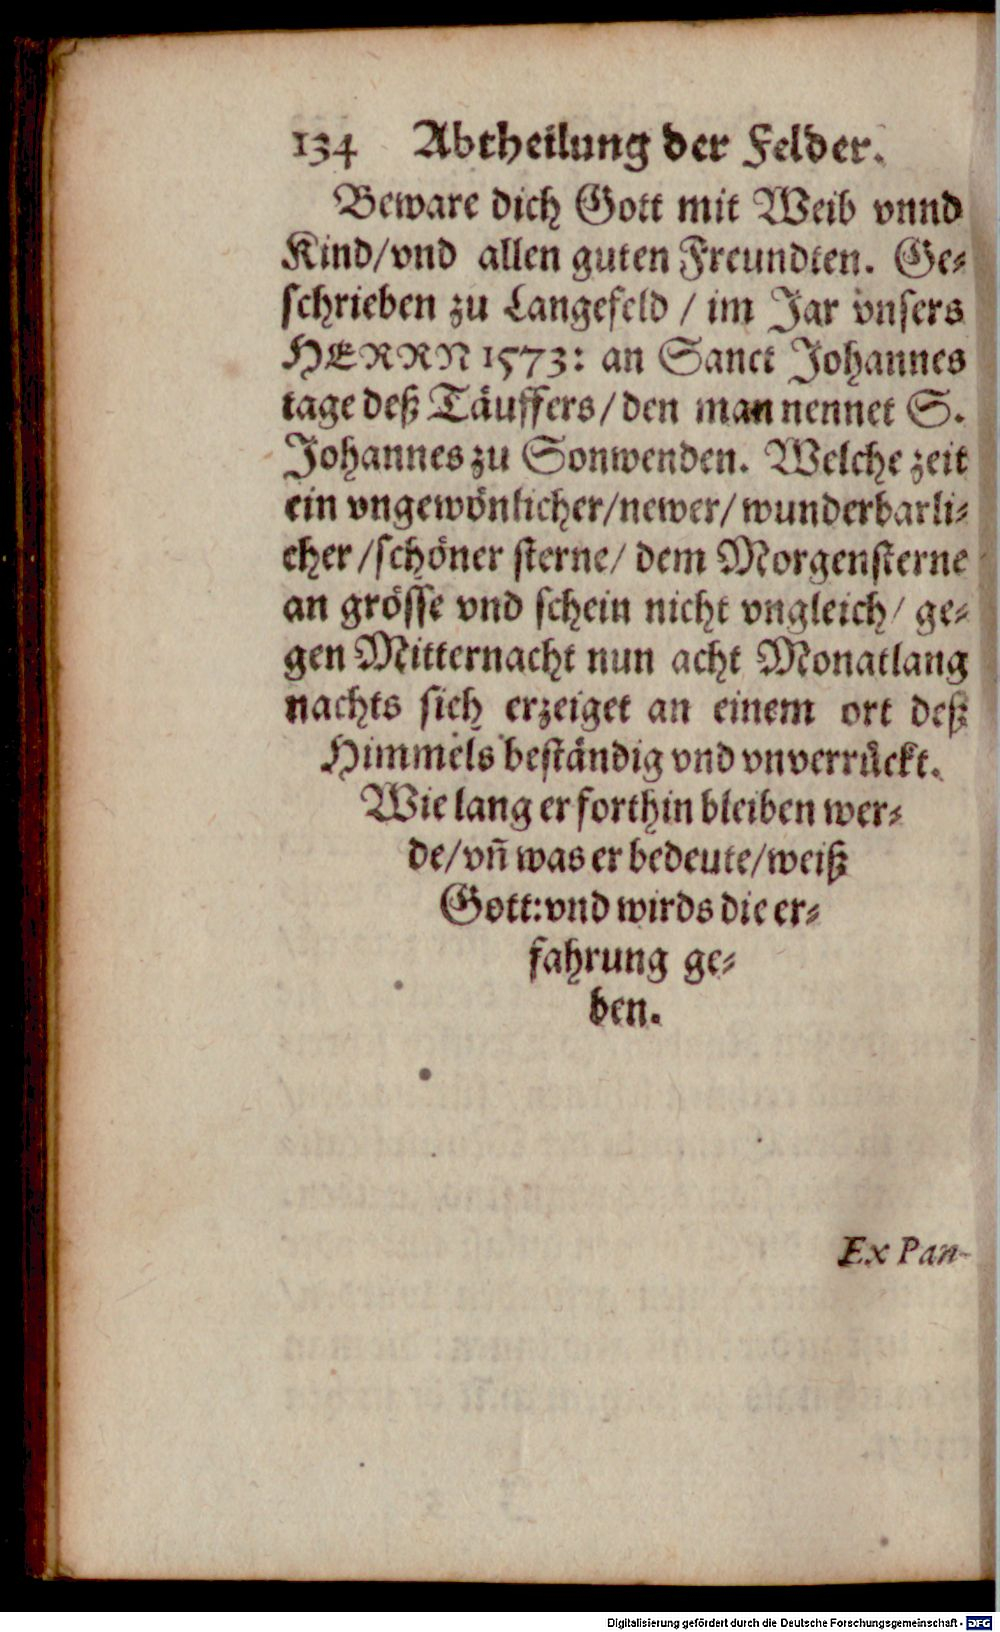 134 Abtheilung der Felder.
Beware dich Gott mit Weib vnnd
Kind/vnd allen guten Freundten. Ge⸗
schrieben zu Langefeld / im Jar vnsers
HERRN 1573: an Sanct Johannes
tage deß Täuffers/den man nennet S.
Johannes zu Sonwenden. Welche zeit
ein vngewönlicher/newer/wunderbarli⸗
cher/schöner sterne/ dem Morgensterne
an grösse vnd schein nicht vngleich/ ge⸗
gen Mitternacht nun acht Monatlang
nachts sich erzeiget an einem ort deß
Himmels beständig vnd vnverrückt.
Wie lang er forthin bleiben wer⸗
de/vñ was er bedeute/weiß
Gott:vnd wirds die er⸗
fahrung ge⸗
ben.
Ex Pan-
Digitalisierung gefördert durch die Deutsche Forschungsgemeinschaft - DFG